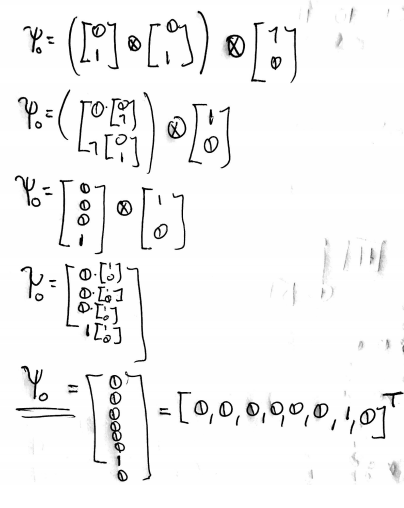 Ψ₀ = ([0 1] ⊗ [0 1]) ⊗ [1 0]
Ψ₀ = ([0·[0 1] 1[0 1]]) ⊗ [1 0]
Ψ₀ = [0 0 0 1] ⊗ [1 0]
Ψ₀ = [0·[1 0] 0·[1 0] 0·[1 0] 1[1 0]]
Ψ₀ = [0 0 0 0 0 0 1 0] = [0, 0, 0, 0, 0, 0, 1, 0]ᵀ